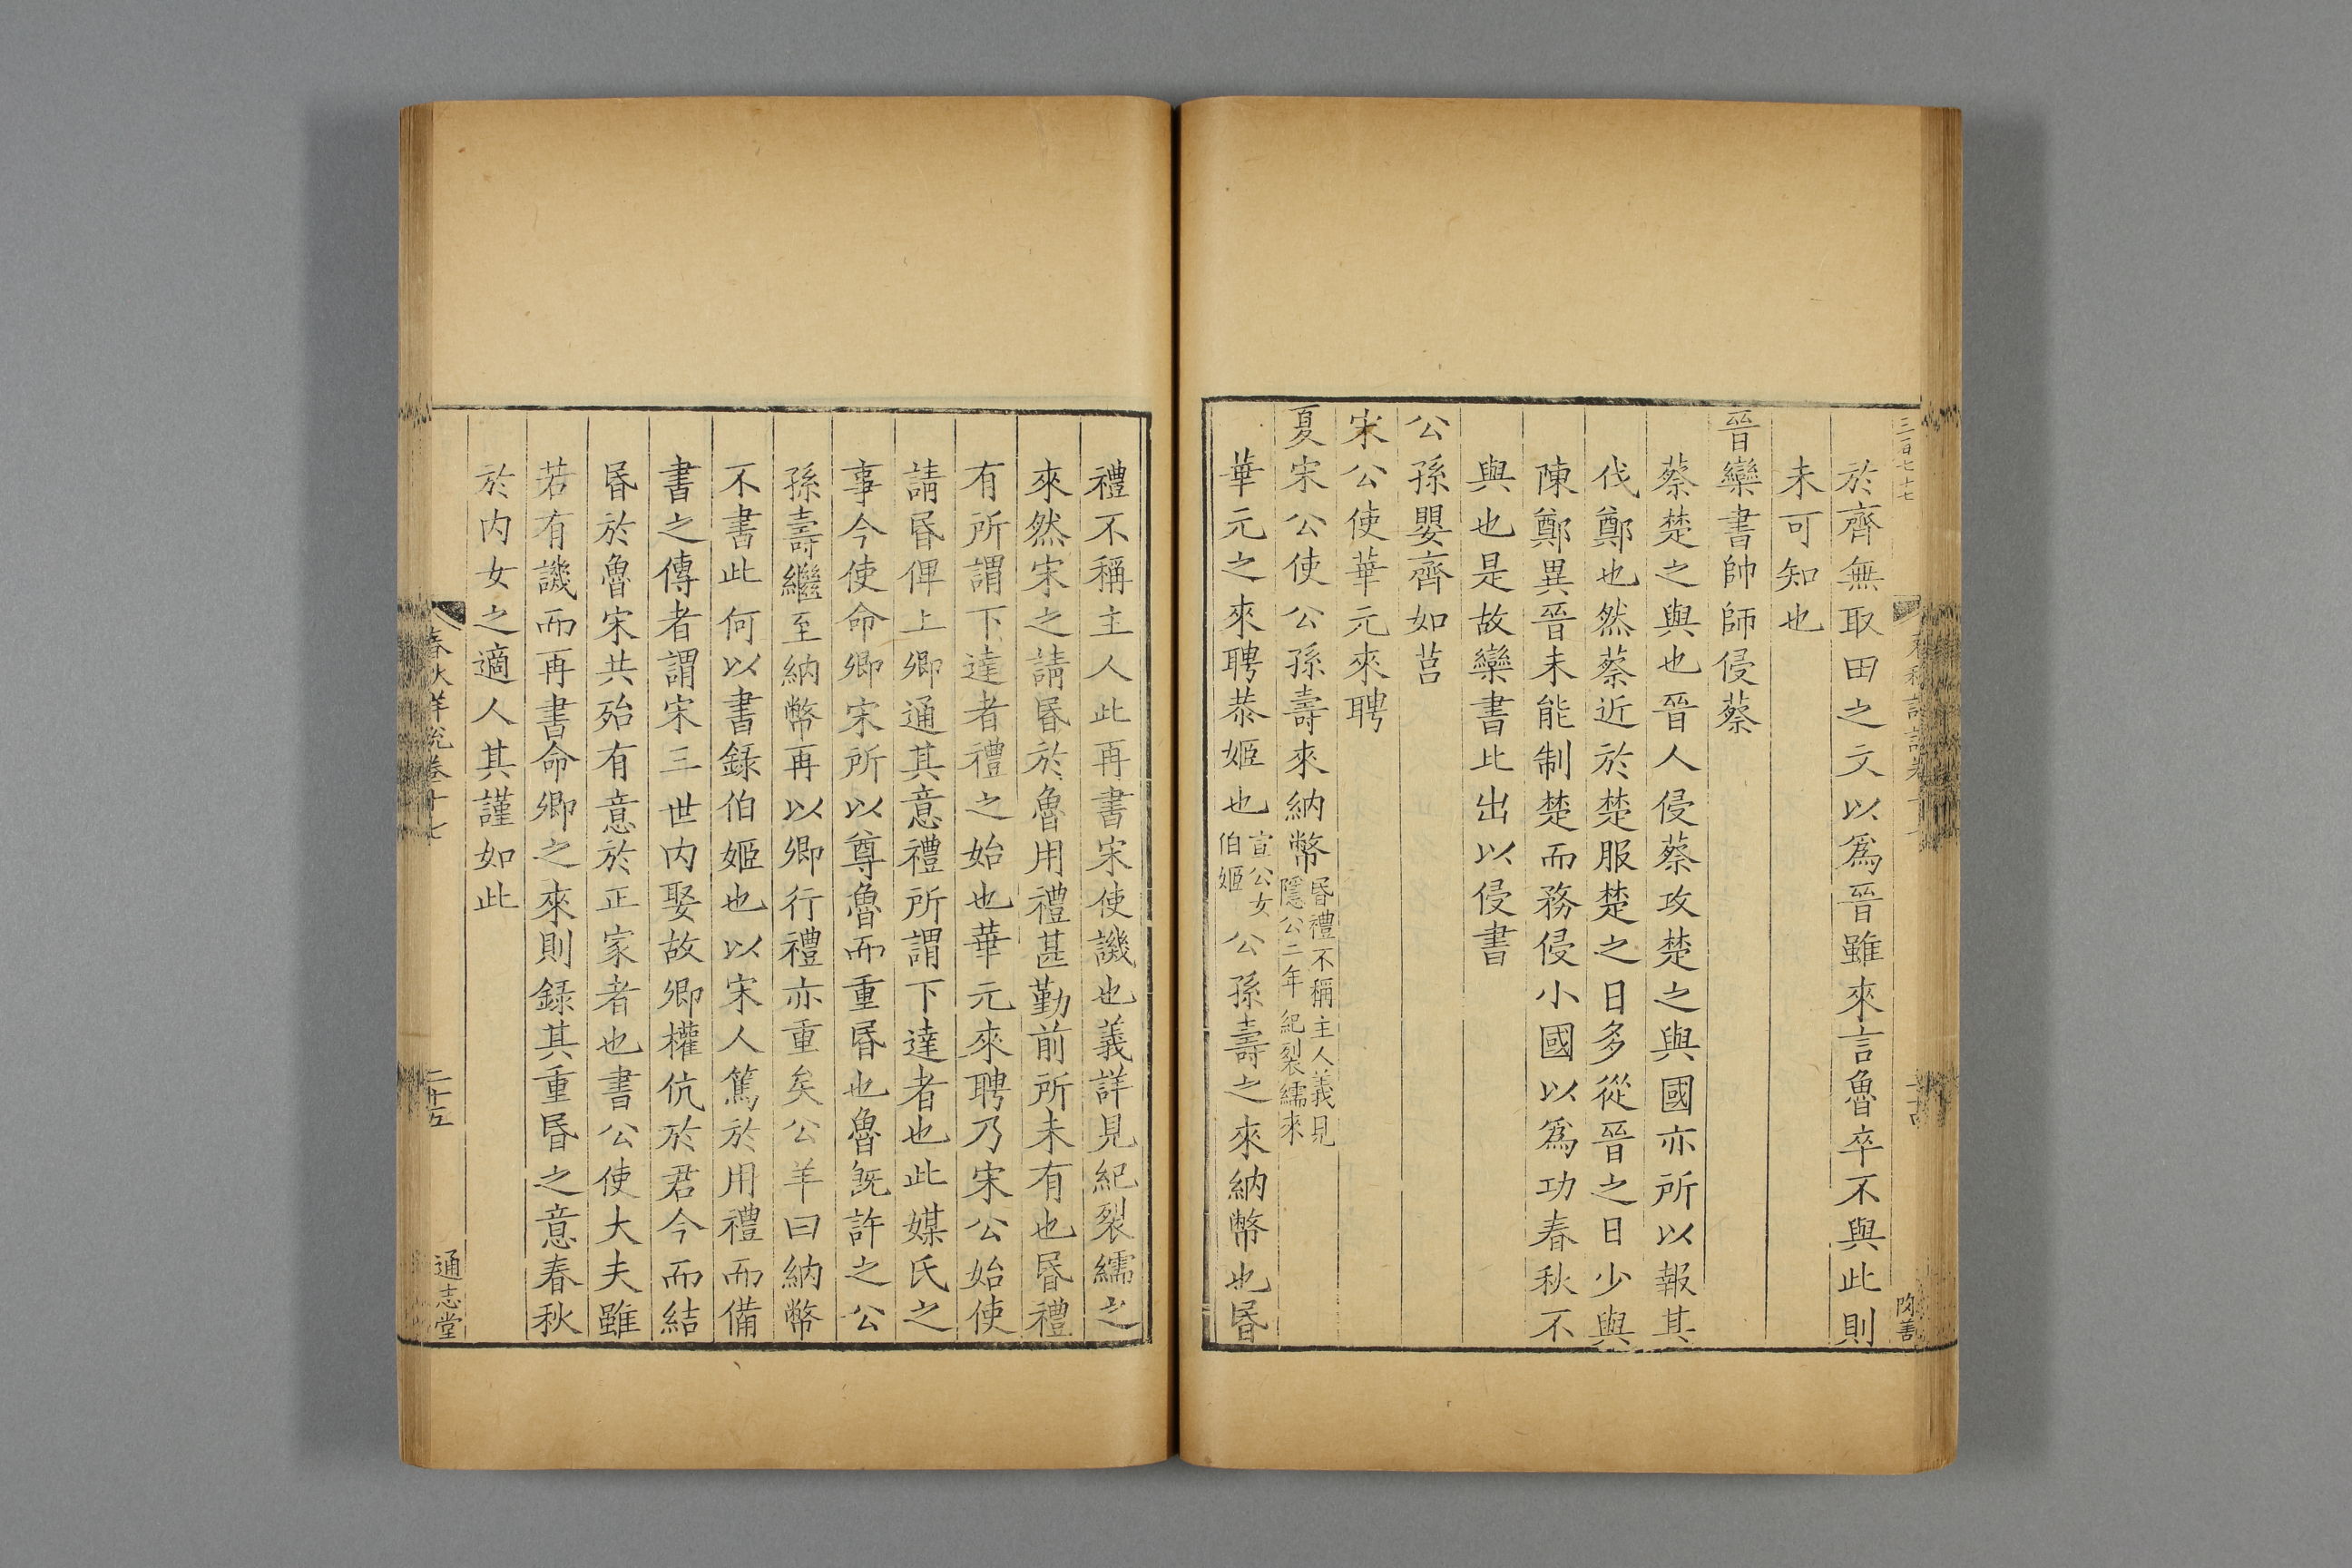 三百七十七
於齊無取田之文以爲晉雖來言魯卒不與此則
未可知也
晉欒書帥師侵蔡
蔡楚之與也晉人侵蔡攻楚之與國亦所以報其
伐鄭也然蔡近於楚服楚之日多從晉之日少與
陳鄭異晉未能制楚而務侵小國以爲功春秋不
與也是故欒書此出以侵書
公孫嬰齊如莒
宋公使華元來聘
夏宋公使公孫壽來納幣昏禮不稱主人義見隱公二年紀裂繻來
華元之來聘恭姬也宣公女伯姬公孫壽之來納幣也昏
禮不稱主人此再書宋使譏也義詳見紀裂繻之
來然宋之請昏於魯用禮甚勤前所未有也昏禮
有所謂下達者禮之始也華元來聘乃宋公始使
請昏俾上卿通其意禮所謂下達者也此媒氏之
事今使命卿宋所以尊魯而重昏也魯旣許之公
孫壽繼至納幣再以卿行禮亦重矣公羊曰納幣
不書此何以書錄伯姬也以宋人篤於用禮而備
書之傳者謂宋三世内娶故卿權伉於君今而結
昏於魯宋共殆有意於正家者也書公使大夫雖
若有譏而再書命卿之來則錄其重昏之意春秋
於内女之適人其謹如此
春秋詳說卷十七
二十五
通志堂